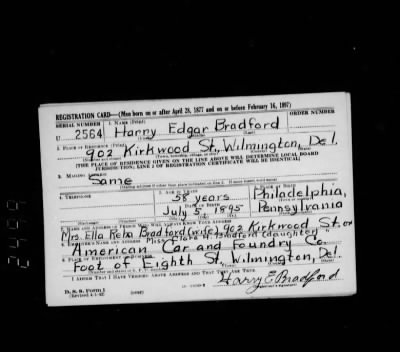 REGISTRATION CARD—(Men born on or after April 28, 1877 and on or before February 16, 1897)
SERIAL NUMBER 1. NAME (Print) ORDER NUMBER
U 2564 Harry Edgar Bradford
2. PLACE OF RESIDENCE (Print)
902 Kirkwood St., Wilmington, Del.
[THE PLACE OF RESIDENCE GIVEN ON THE LINE ABOVE WILL DETERMINE LOCAL BOARD
JURISDICTION; LINE 2 OF REGISTRATION CERTIFICATE WILL BE IDENTICAL]
3. MAILING ADDRESS
Same
4. TELEPHONE 5. AGE IN YEARS
58 years Philadelphia,
DATE OF BIRTH
July 5 1895 Pennsylvania
7. NAME AND ADDRESS OF PERSON WHO WILL ALWAYS KNOW YOUR ADDRESS
Mrs. Ella Bradford (wife) 902 Kirkwood St. or
8. EMPLOYER'S NAME AND ADDRESS Miss Bradford (daughter)
American Car and Foundry Co.
9. PLACE OF EMPLOYMENT OR BUSINESS
Foot of Eighth St., Wilmington, Del.
I AFFIRM THAT I HAVE VERIFIED ABOVE ANSWERS AND THAT THEY ARE TRUE.
Harry E Bradford
D. S. S. Form 1
(Revised 4-1-42) (over)
2499